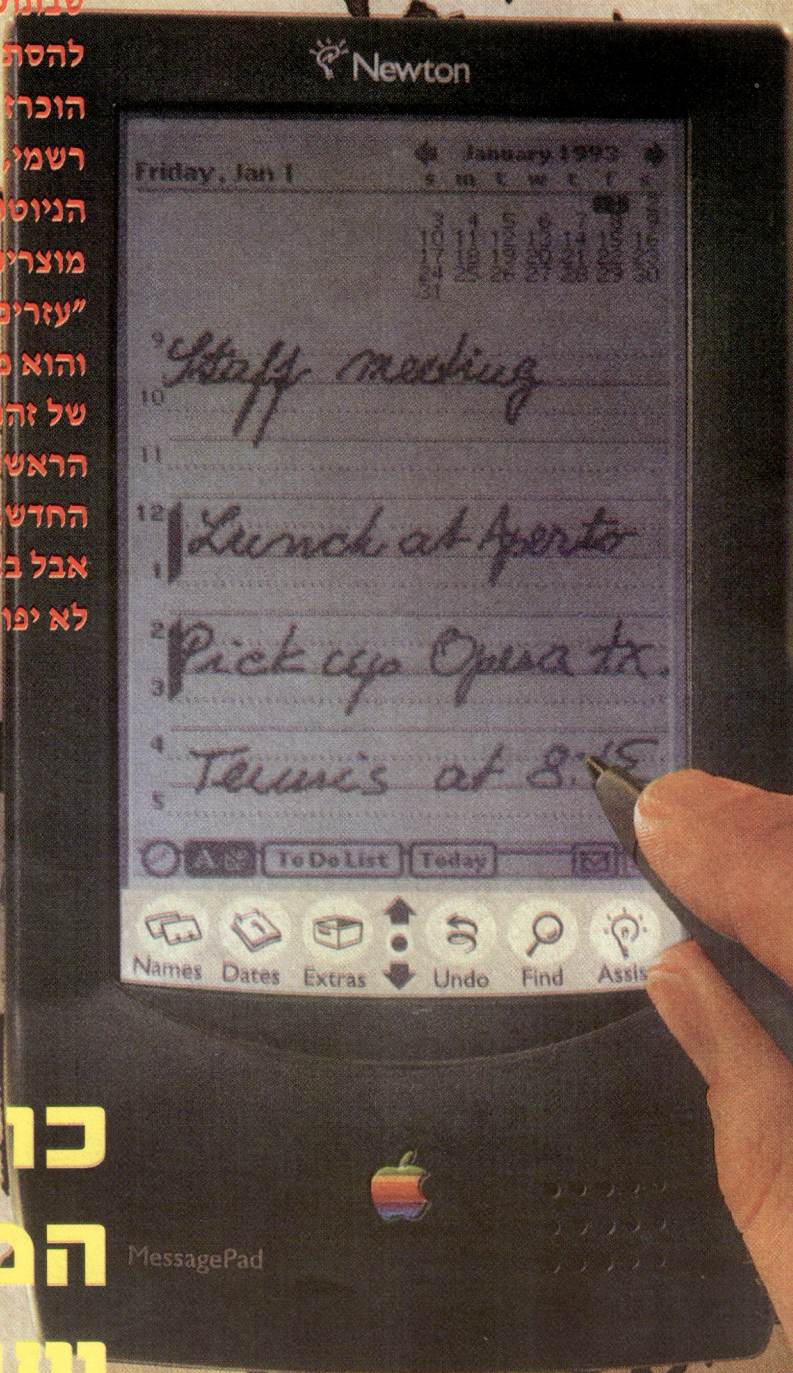 להסת
הוכרז
רשמי,
הניוט
מוצרי
"עזרים
והוא מ
של זה
הראש
החדש
אבל ב
לא יפו
Newton
Friday, Jan 1
January 1993
s m t w t f s
3 4 5 6 7
10 11 12 13 14 15
17 18 19 20 21 22 23
24 25 26 27 28 29 30
31
9
Staff meeting
10
11
12
Lunch at Aperto
1
2
Pick up Opera tx.
3
4
Tennis at 8:15
5
To Do List Today
Names Dates Extras Undo Find Assis
MessagePad
כו
המ